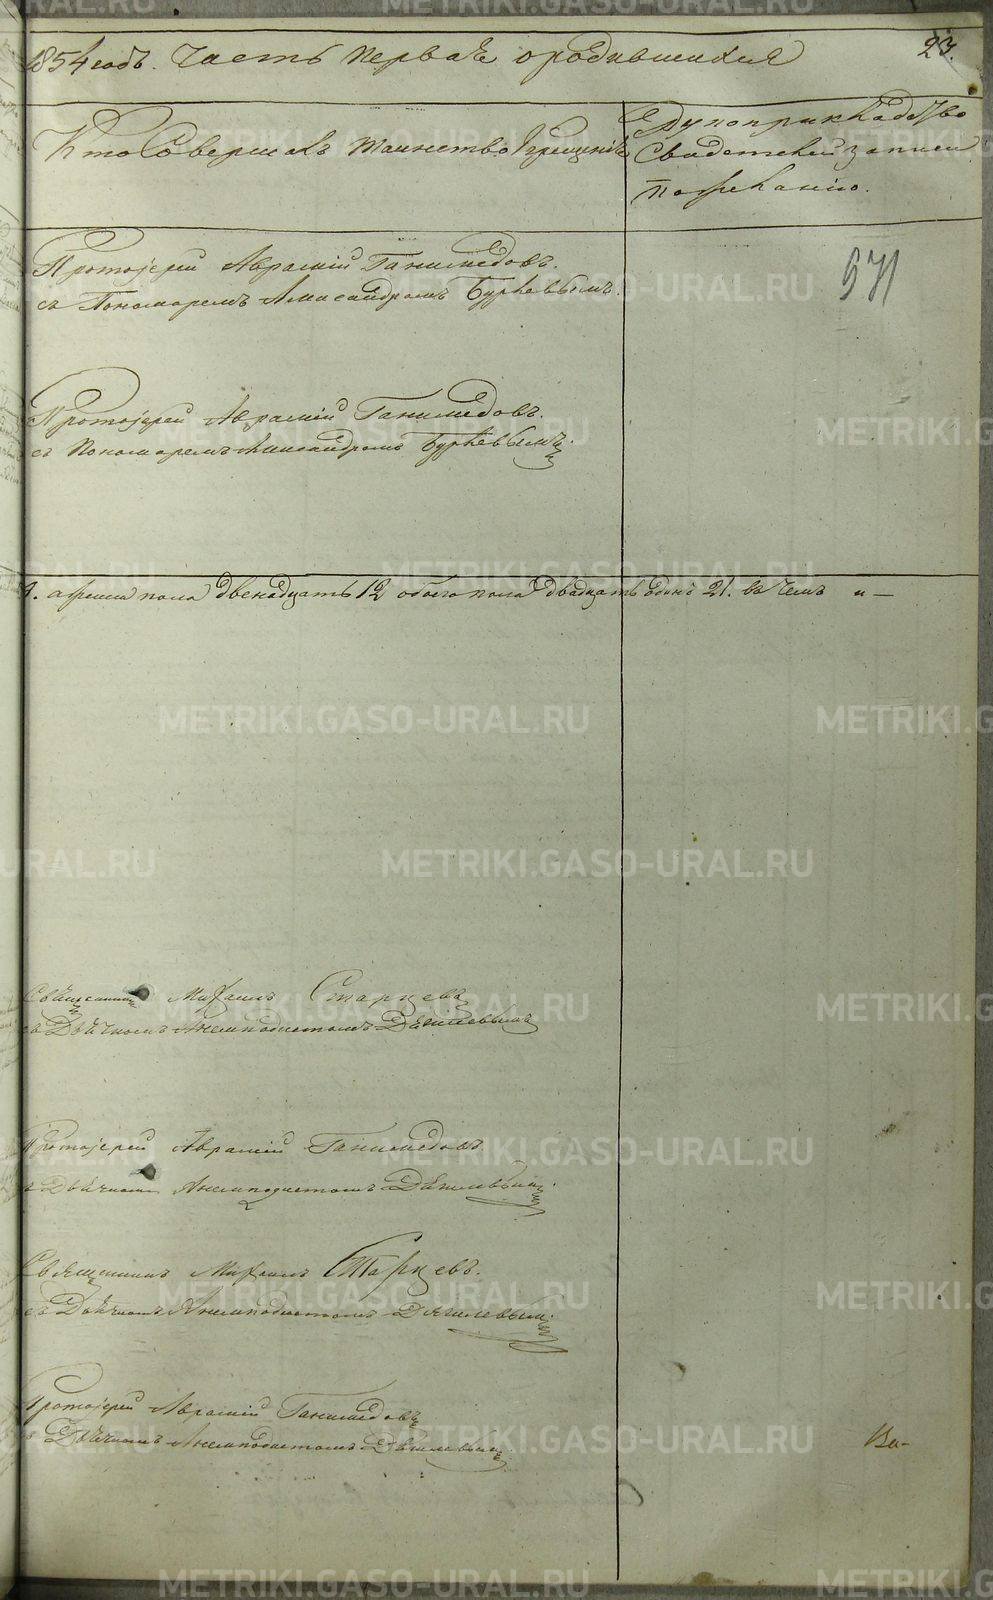 1854 годъ. Часть первая о родившихся
23.
Кто Совершалъ таинство Крещенія
Рукоприкладство
Свидетелей записи
по желанію.
Протоіерей Авраамій Ганимедовъ.
съ Пономаремъ Александромъ Буркевымъ.
571
Протоіерей Авраамій Ганимедовъ.
съ Пономаремъ Александромъ Буркевымъ.
а женска пола двенадцать 12 обоего пола двадцать одинъ 21. въ чемъ и —
Священникъ Михаилъ Старцевъ
съ Дьячкомъ Анемподистомъ Дягилевымъ
Протоіерей Авраамій Ганимедовъ
съ Дьячкомъ Анемподистомъ Дягилевымъ.
Священникъ Михаилъ Старцевъ.
съ Дьячкомъ Анемподистомъ Дягилевымъ.
Протоіерей Авраамій Ганимедовъ
съ Дьячкомъ Анемподистомъ Дягилевымъ
METRIKI.GASO-URAL.RU